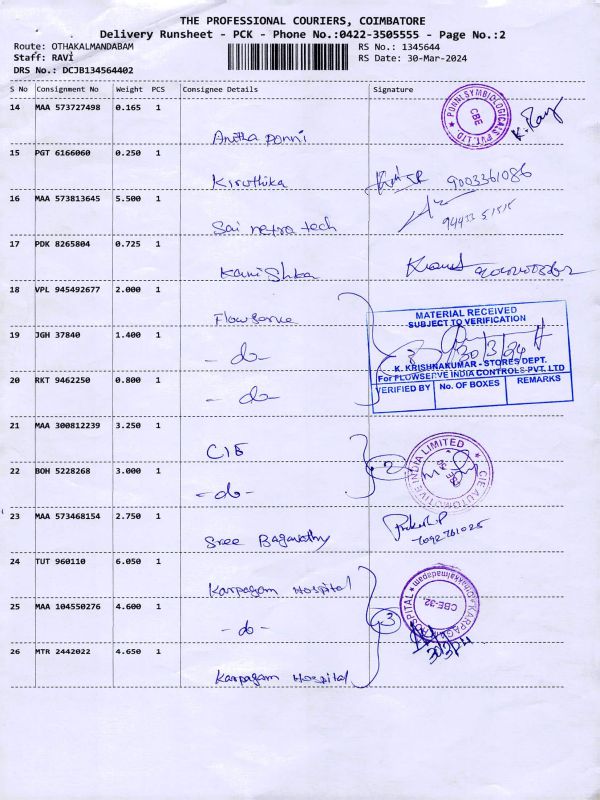 THE PROFESSIONAL COURIERS, COIMBATORE
Delivery Runsheet - PCK - Phone No.:0422-3505555 - Page No.:2
Route: OTHAKALMANDABAM
RS No.: 1345644
Staff: RAVI
RS Date: 30-Mar-2024
DRS No.: DCJB134564402
S No Consignment No Weight PCS Consignee Details Signature
14 MAA 573727498 0.165 1
Anitha ponni
PONNI SYMBIOLOGICALS PVT. LTD. CBE
K. Ray
15 PGT 6166060 0.250 1
Kiruthika
9003361086
16 MAA 573813645 5.500 1
Sai netra tech
94433 51515
17 PDK 8265804 0.725 1
Kanishka
18 VPL 945492677 2.000 1
Flowserve
MATERIAL RECEIVED
SUBJECT TO VERIFICATION
19 JGH 37840 1.400 1
- do -
30/3/24
K. KRISHNAKUMAR - STORES DEPT.
For FLOWSERVE INDIA CONTROLS PVT. LTD
20 RKT 9462250 0.800 1
- do -
VERIFIED BY No. OF BOXES REMARKS
21 MAA 300812239 3.250 1
CIE
22 BOH 5228268 3.000 1
- do -
2
CIE AUTOMOTIVE INDIA LIMITED
23 MAA 573468154 2.750 1
Sree Bagavathy
7092761025
24 TUT 960110 6.050 1
Karpagam Hospital
25 MAA 104550276 4.600 1
- do -
3
KARPAGAM HOSPITAL Othakkalmandapam CBE-32.
26 MTR 2442022 4.650 1
Karpagam Hospital